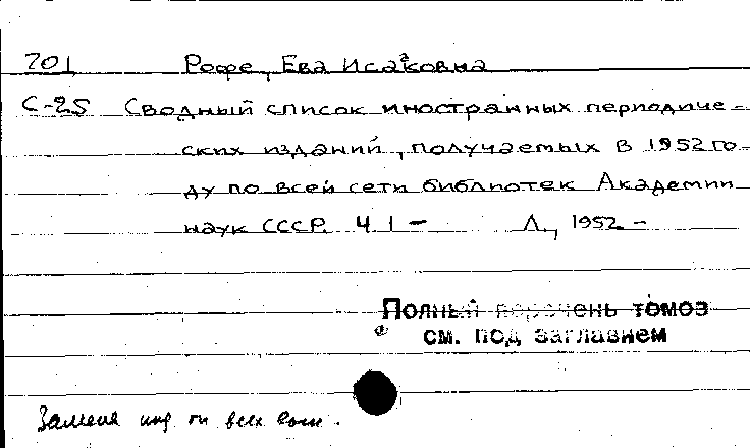 701 Рофе, Ева Исааковна
С-25 Сводный список иностранных периодиче-
ских изданий, получаемых в 1952 го-
ду по всей сети библиотек Академии
наук СССР. Ч 1 - Л., 1952 -
Полный перечень томов
см. под заглавием
всех